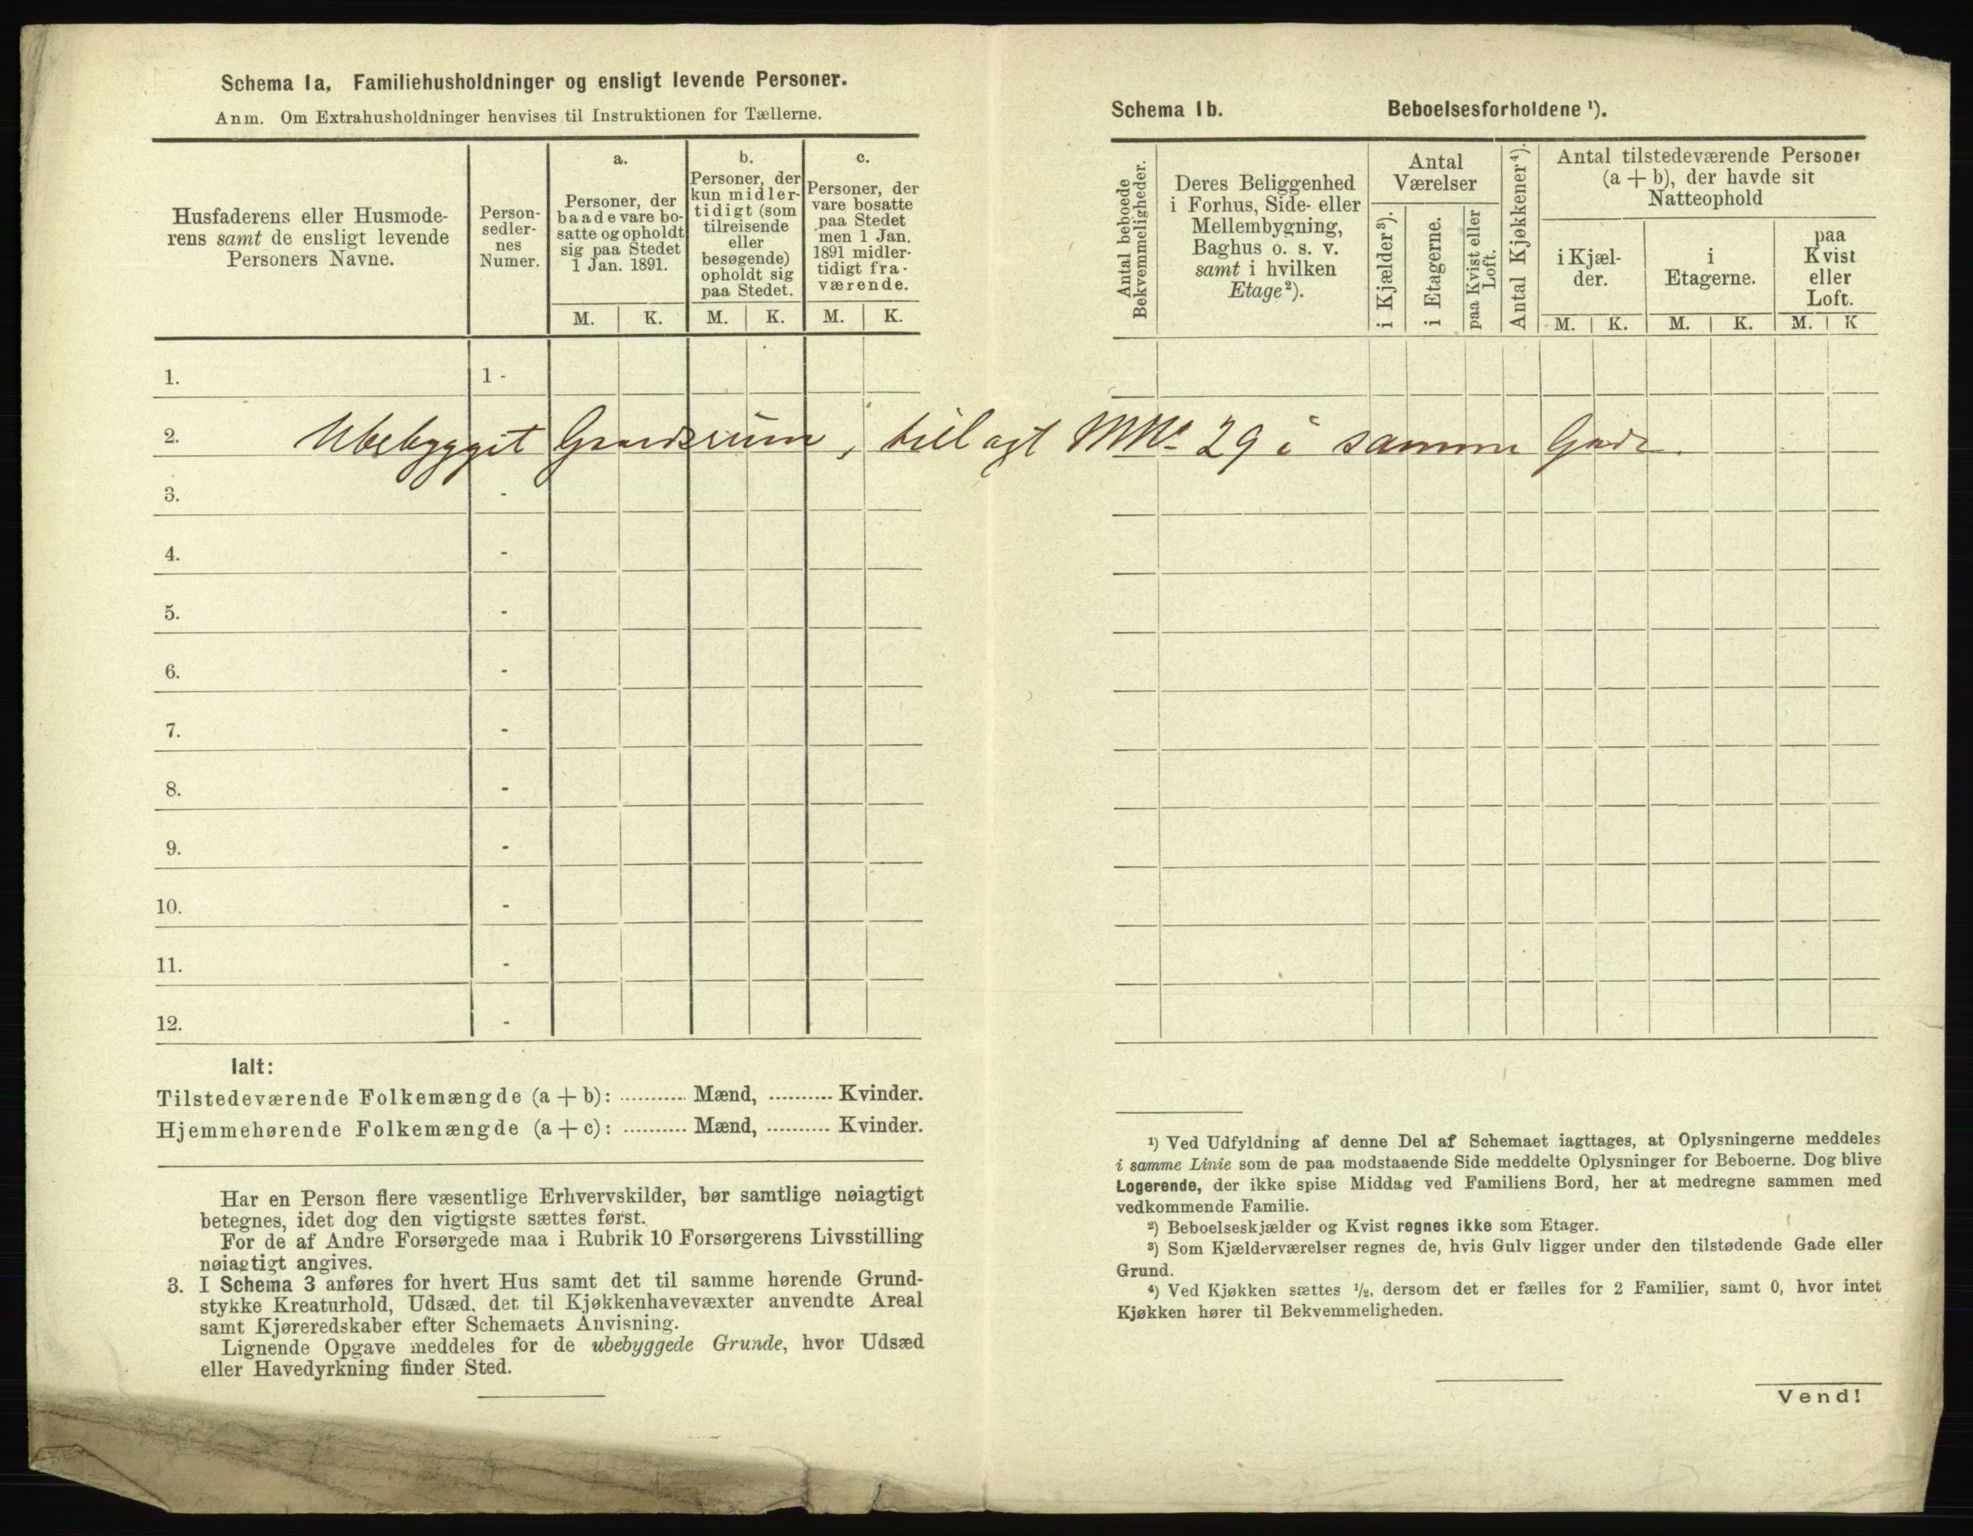 Schema 1a, Familiehusholdninger og ensligt levende Personer.
Anm. Om Extrahusholdninger henvises til Instruktionen for Tællerne.
Husfaderens eller Husmode-
rens samt de ensligt levende
Personers Navne.
Person-
sedler-
nes
Numer.
a.
Personer, der
baade vare bo-
satte og opholdt
sig paa Stedet
1 Jan. 1891.
b.
Personer, der
kun midler-
tidigt (som
tilreisende
eller
besøgende)
opholdt sig
paa Stedet.
c.
Personer, der
vare bosatte
paa Stedet
men 1 Jan.
1891 midler-
tidigt fra-
værende.
M. K. M. K. M. K.
1. 1 -
2.
3. -
4. -
5. -
6. -
7. -
8. -
9. -
10. -
11. -
12. -
Ubebygget Gaardsrum, tillagt MNo 29 i samme Gade.
Ialt:
Tilstedeværende Folkemængde (a + b): .......... Mænd, .......... Kvinder.
Hjemmehørende Folkemængde (a + c): .......... Mænd, .......... Kvinder.
Har en Person flere væsentlige Erhvervskilder, bør samtlige nøiagtigt
betegnes, idet dog den vigtigste sættes først.
For de af Andre Forsørgede maa i Rubrik 10 Forsørgerens Livsstilling
nøiagtigt angives.
3. I Schema 3 anføres for hvert Hus samt det til samme hørende Grund-
stykke Kreaturhold, Udsæd, det til Kjøkkenhavevæxter anvendte Areal
samt Kjøreredskaber efter Schemaets Anvisning.
Lignende Opgave meddeles for de ubebyggede Grunde, hvor Udsæd
eller Havedyrkning finder Sted.
Schema 1b. Beboelsesforholdene ¹).
Antal beboede
Bekvemmeligheder.
Deres Beliggenhed
i Forhus, Side- eller
Mellembygning,
Baghus o. s. v.
samt i hvilken
Etage²).
Antal
Værelser
i Kjælder³).
i Etagerne.
paa Kvist eller
Loft.
Antal Kjøkkener⁴).
Antal tilstedeværende Personer
(a + b), der havde sit
Natteophold
i Kjæl-
der.
i
Etagerne.
paa
Kvist
eller
Loft.
M. K. M. K. M. K
¹) Ved Udfyldning af denne Del af Schemaet iagttages, at Oplysningerne meddeles
i samme Linie som de paa modstaaende Side meddelte Oplysninger for Beboerne. Dog blive
Logerende, der ikke spise Middag ved Familiens Bord, her at medregne sammen med
vedkommende Familie.
²) Beboelseskjælder og Kvist regnes ikke som Etager.
³) Som Kjælderværelser regnes de, hvis Gulv ligger under den tilstødende Gade eller
Grund.
⁴) Ved Kjøkken sættes ½, dersom det er fælles for 2 Familier, samt 0, hvor intet
Kjøkken hører til Bekvemmeligheden.
Vend!